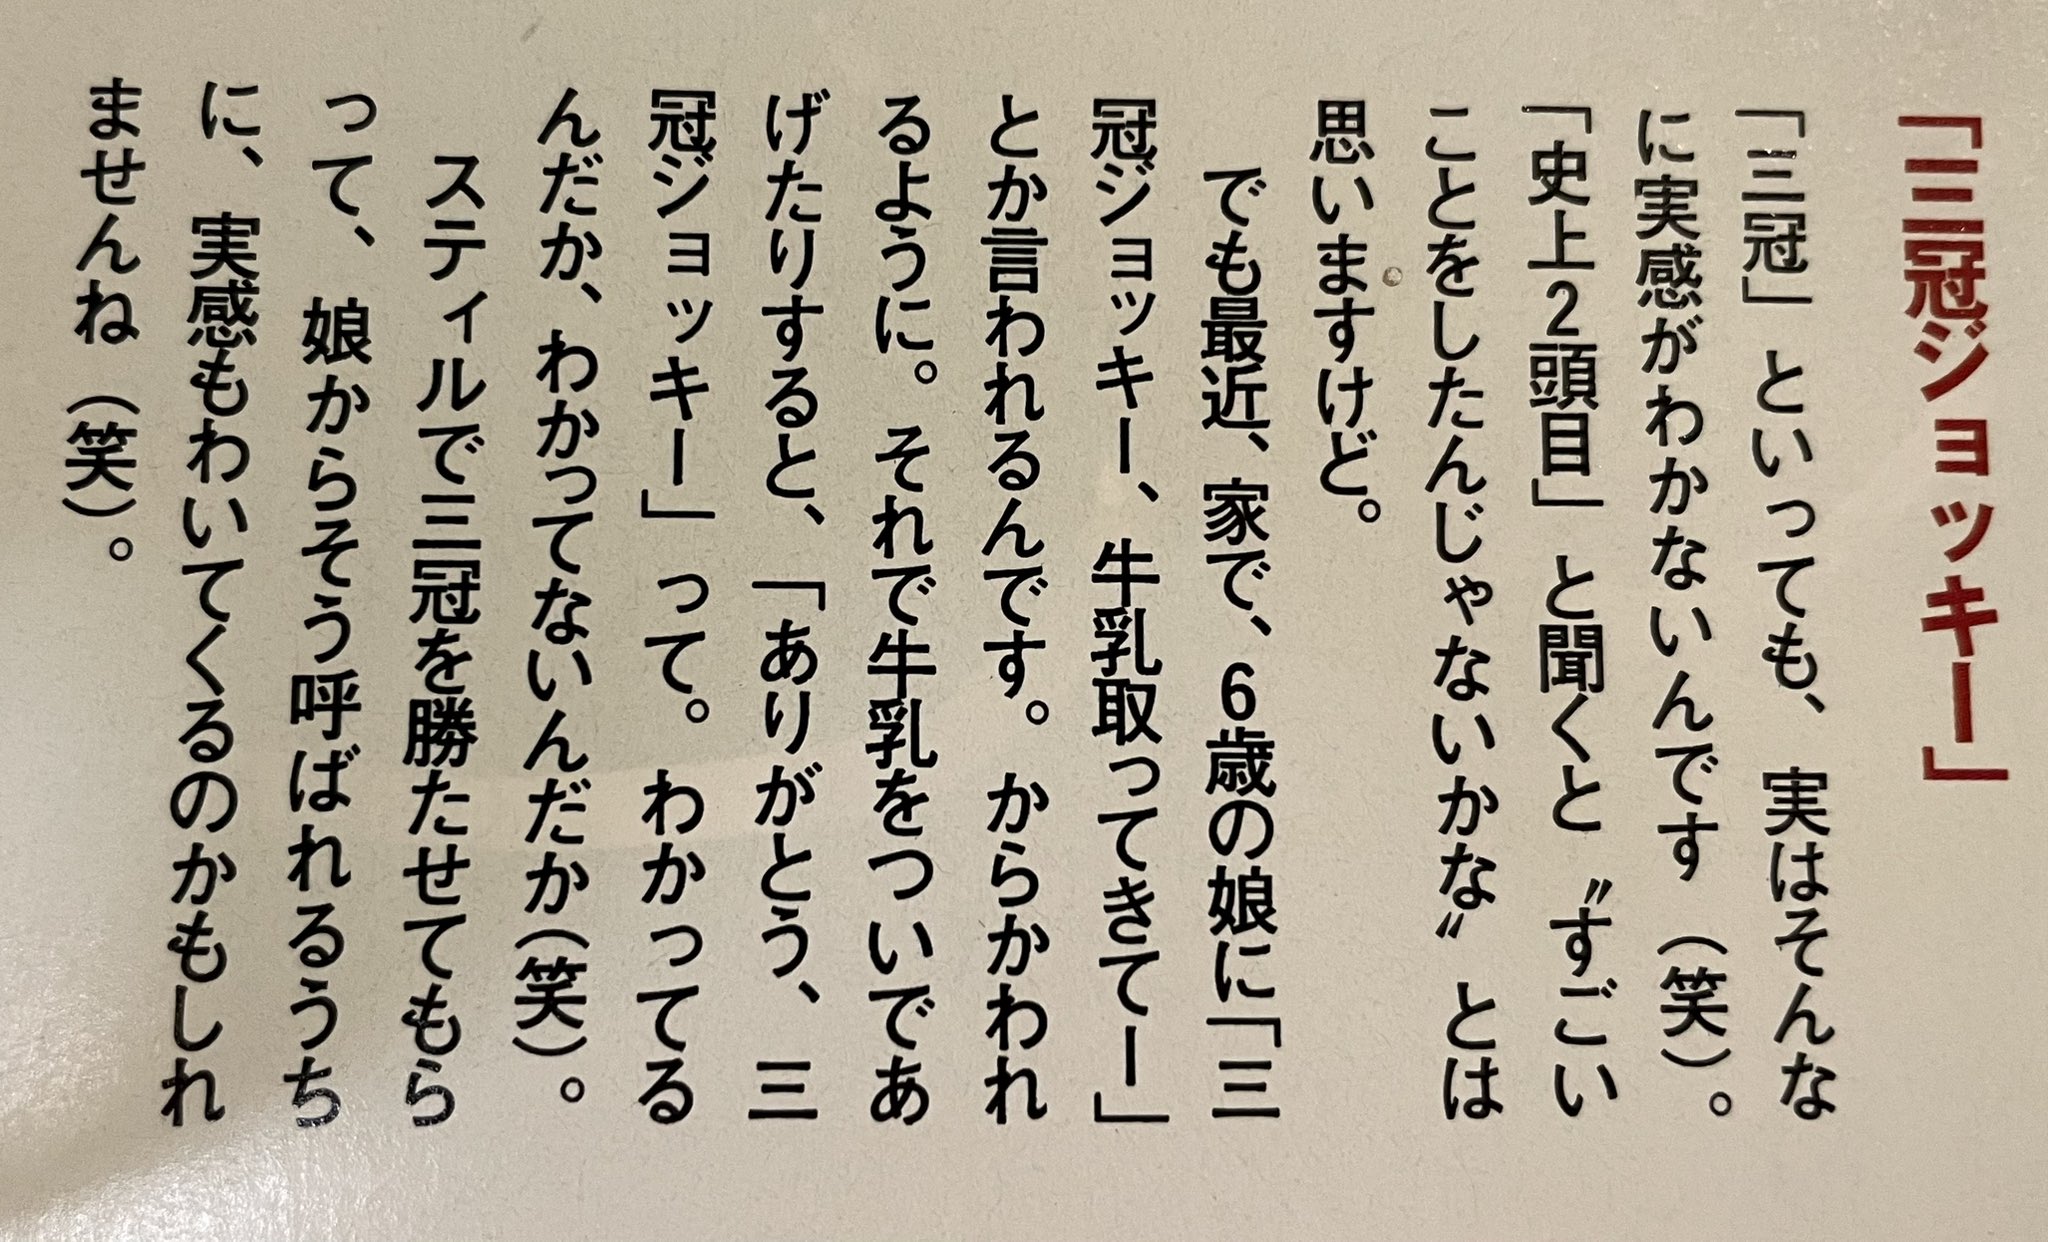 「三冠ジョッキー」
「三冠」といっても、実はそんな
に実感がわかないんです（笑）。
「史上2頭目」と聞くと〝すごい
ことをしたんじゃないかな〟とは
思いますけど。
でも最近、家で、6歳の娘に「三
冠ジョッキー、牛乳取ってきてー」
とか言われるんです。からかわれ
るように。それで牛乳をついであ
げたりすると、「ありがとう、三
冠ジョッキー」って。わかってる
んだか、わかってないんだか（笑）。
スティルで三冠を勝たせてもら
って、娘からそう呼ばれるうち
に、実感もわいてくるのかもしれ
ませんね（笑）。